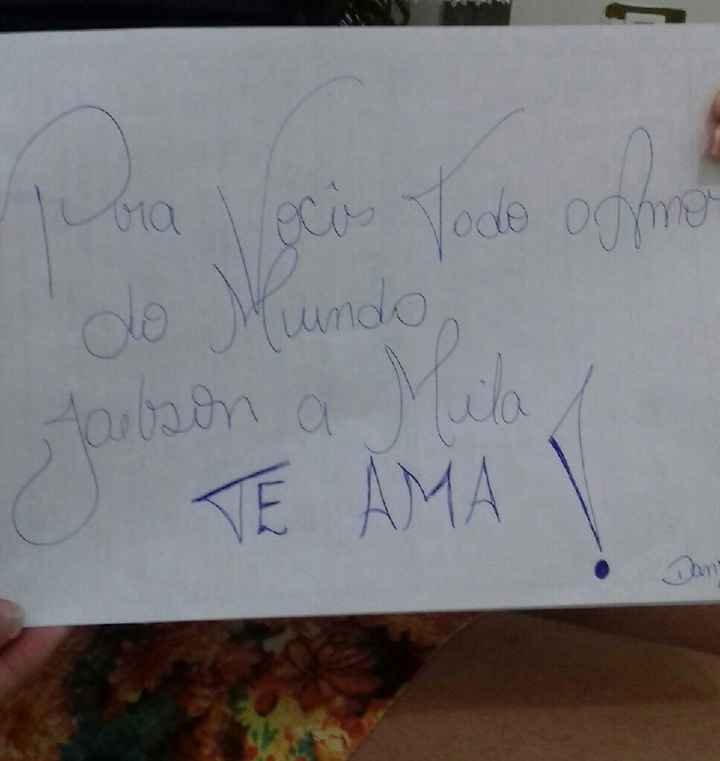 Para Vocês Todo o Amor
do Mundo
Jaebson a Mila
TE AMA !
Dani